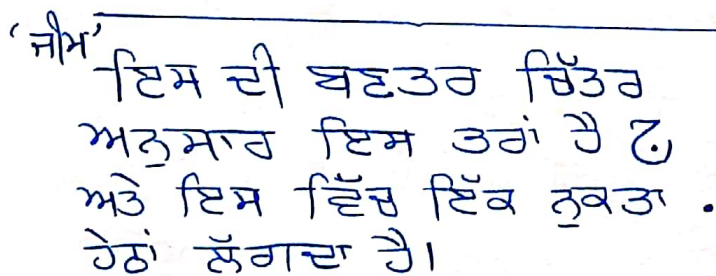 ‘ਜੀਮ’
ਇਸ ਦੀ ਬਣਤਰ ਚਿੱਤਰ
ਅਨੁਸਾਰ ਇਸ ਤਰਾਂ ਹੈ ج
ਅਤੇ ਇਸ ਵਿੱਚ ਇੱਕ ਨੁਕਤਾ .
ਹੇਠਾਂ ਲੱਗਦਾ ਹੈ।